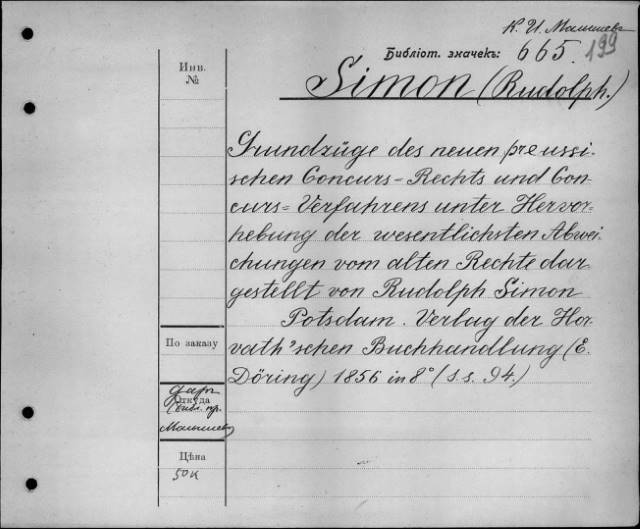 К. И. Малышевъ
Библіот. значекъ: 665. 199
Инв.
№
Simon (Rudolph.)
Grundzüge des neuen preussi-
schen Concurs-Rechts und Con-
curs-Verfahrens unter Hervor-
hebung der wesentlichsten Abwei-
chungen vom alten Rechte dar-
gestellt von Rudolph Simon
Potsdam. Verlag der Hor-
vath'schen Buchhandlung (E.
Döring) 1856 in 8° (s.s. 94.)
По заказу
Даръ
Откуда
библ. пр.
Малышев
Цѣна
50 к